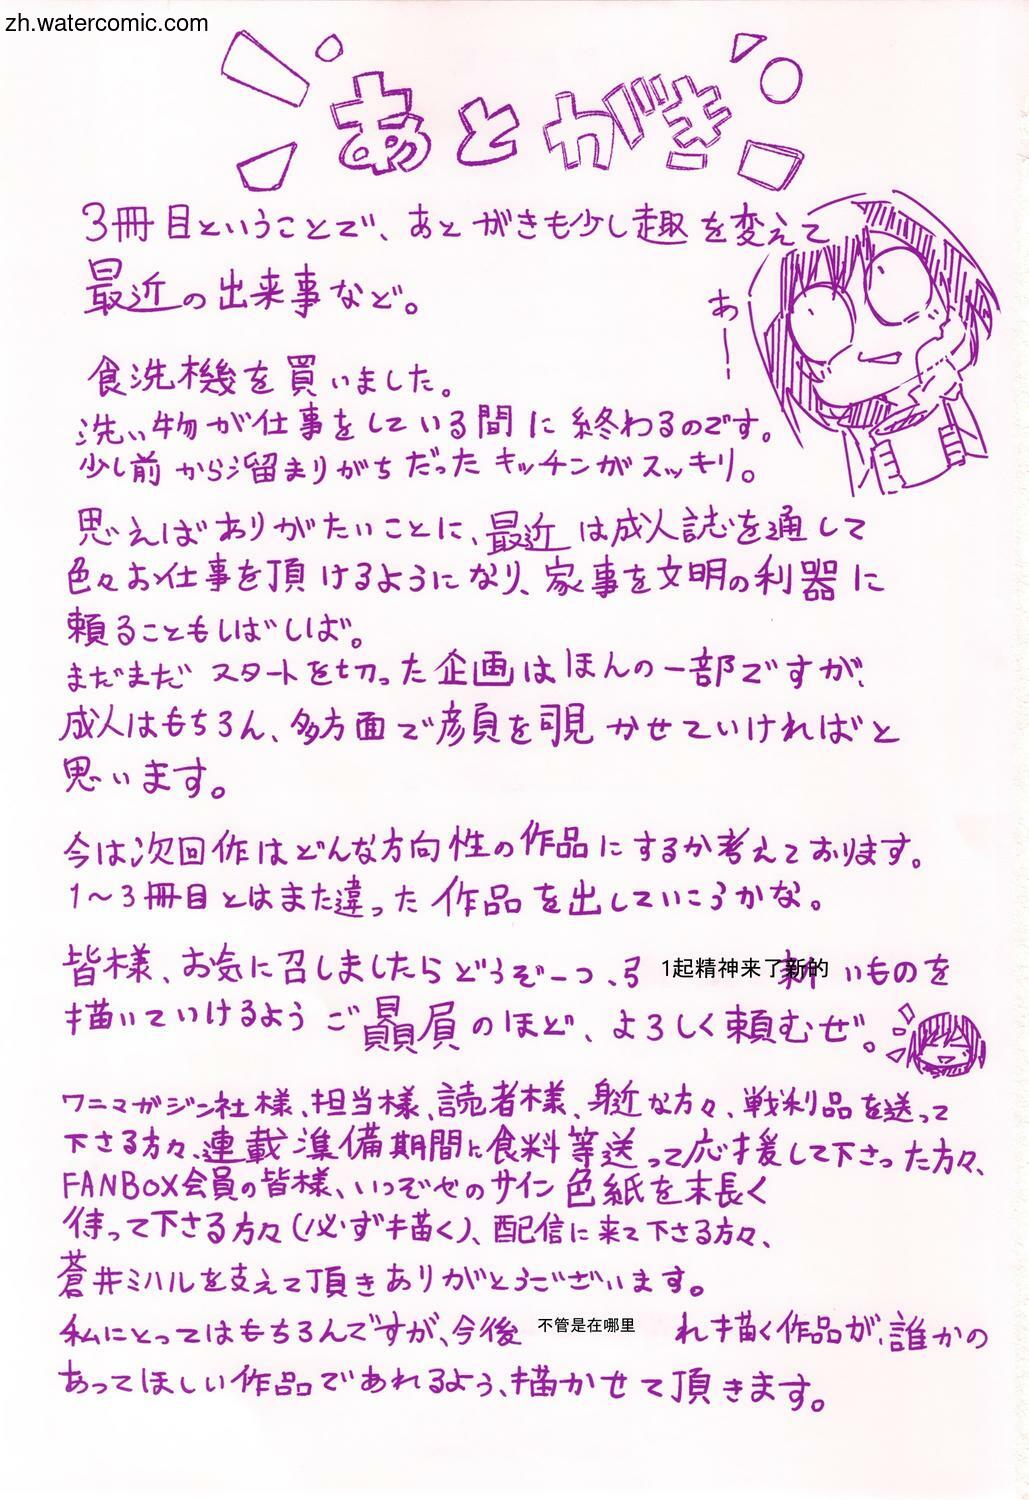 zh.watercomic.com
あとがき
3冊目ということで、あとがきも少し趣を変えて
最近の出来事など。
あー
食洗機を買いました。
洗い物が仕事をしている間に終わるのです。
少し前から溜まりがちだったキッチンがスッキリ。
思えばありがたいことに、最近は成人誌を通して
色々お仕事を頂けるようになり、家事を文明の利器に
頼ることもしばしば。
まだまだスタートを切った企画はほんの一部ですが、
成人はもちろん、多方面で顔を覗かせていければと
思います。
今は次回作はどんな方向性の作品にするか考えております。
1〜3冊目とはまた違った作品を出していこうかな。
皆様、お気に召しましたらどうぞ一つ、弓 1起精神来了新的 いものを
描いていけるようご贔屓のほど、よろしく頼むぜ。
ワニマガジン社様、担当様、読者様、身近な方々、戦利品を送って
下さる方々、連載準備期間に食料等送って応援して下さった方々、
FANBOX会員の皆様、いつぞやのサイン色紙を末長く
待って下さる方々(必ず描く)、配信に来て下さる方々、
蒼井ミハルを支えて頂きありがとうございます。
私にとってはもちろんですが、今後 不管是在哪里 れ描く作品が、誰かの
あってほしい作品であれるよう、描かせて頂きます。